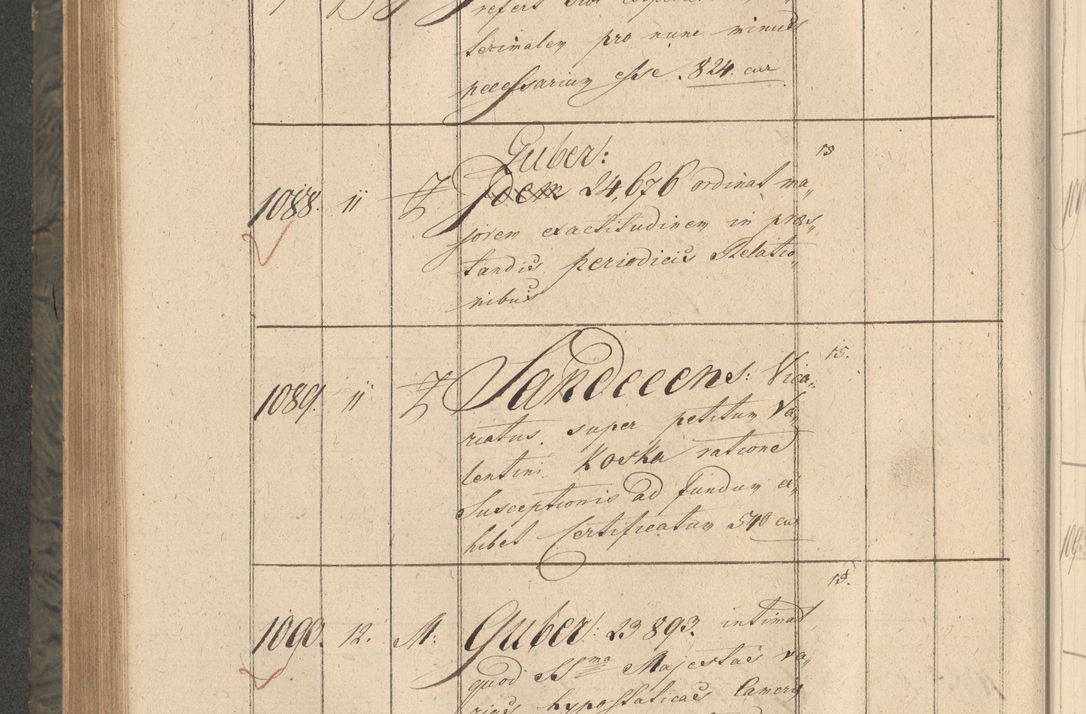 lecimalem pro nunc minus
necessarium esse. 824. cur
Guber:
13
1088. 11 Z Idem 24,676 ordinat ma„
jorem exactitudinem in præs„
tandis periodicis Relatio„
nibus
15.
1089. 11 Z Sandecens: Vica„
riatus super petitum Va„
lentini Koska ratione
Susceptionis ad fundum ex„
hibet Certificatum 540 cur
13.
1090. 12. M. Guber: 23893. intimat
quod SSma Majestas va„
rias hypostaticas Camera